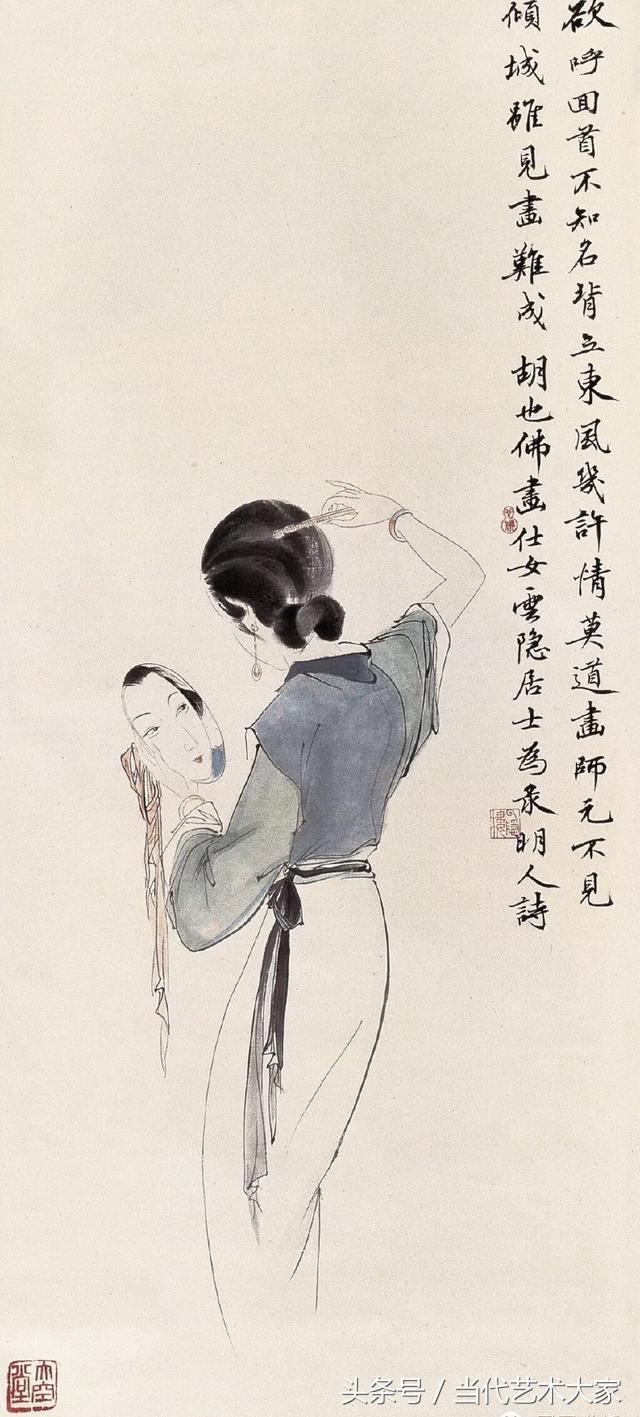 欲呼回首不知名背立東風幾許情莫道畫師元不見
傾城雖見畫難成 胡也佛畫仕女雲隐居士為录明人詩
大空堂
头条号 / 当代艺术大家